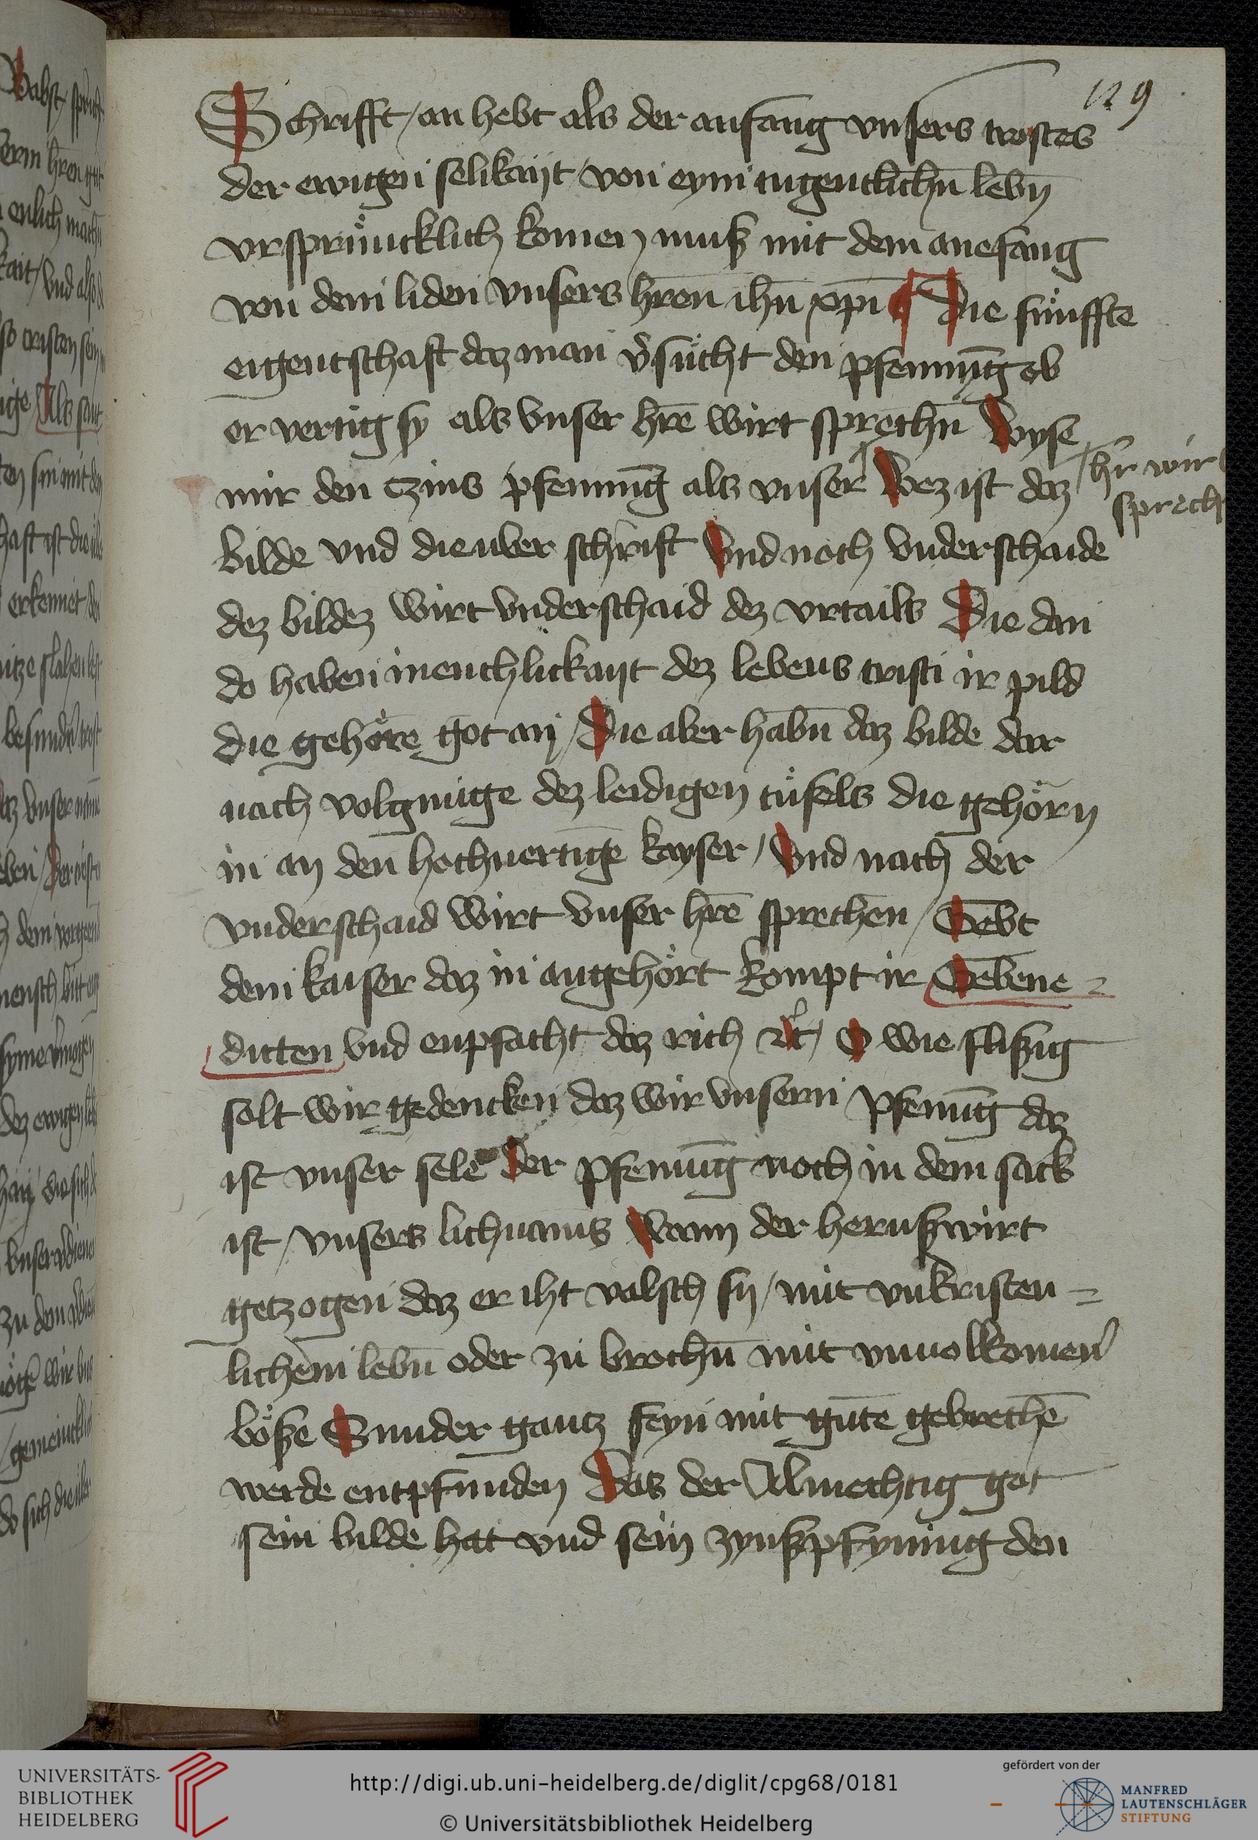 129
Schrifft / an hebt als der anfang vnsers trostes
der ewigen selikayt / von eym tugentlichn̄ lebn̄
vrsprūncklich komen muß mit dem anefang
von dem liden vnsers hren̄ ihū xp̄i ¶ Die fünffte
eigentschaft daz man v̾sücht den pfenning ob
er vertig sy als vnser hrē wirt sprechn̄ Wyse
mir den czins pfenning als vnser Wez ist daz
/ hr̄ wir
sprech
bilde vnd die uber schrift Vnd noch vnderschaide
dez bildez wirt vnderschaid dez vrtails Die dan
do haben menchlickayt dez lebens cristi ir pild
die gehöre got an / Die aber habn̄ daz bilde dar
nach volgunge dez leidigen tüfels die gehörn
in an den hochuertigē kayser / Vnd nach der
vnderschaid wirt vnser hrē sprechen / Gebt
dem kaiser daz im angehört kompt ir Gebene =
ditten vnd enpfacht daz rich ꝛc̄ / O wie flißig
solt wir gedencken daz wir vnsern pfenīng daz
ist vnser sele der pfenning noch in dem sack
ist / vnsers lichnams Wann der heruß wirt
getzogen daz er iht valsch sy / mit vnkristen =
lichem lebn̄ oder zu brochn̄ mit vnuolkomen̾
böße Sunder gantz feyn mit gutē gebrechē
werde entpfunden Das der Almechtig got
sein bilde hat vnd sein zynßpfyning den
Babst
kait / vnd also
so cristen sein
Als sant
ten sin mit
haft ist die
erkennet
vnser
dem
mensch
dez ewigen
zu dem
wir
do sich die
UNIVERSITÄTS-
BIBLIOTHEK
HEIDELBERG
http://digi.ub.uni-heidelberg.de/diglit/cpg68/0181
© Universitätsbibliothek Heidelberg
gefördert von der
MANFRED
LAUTENSCHLÄGER
STIFTUNG